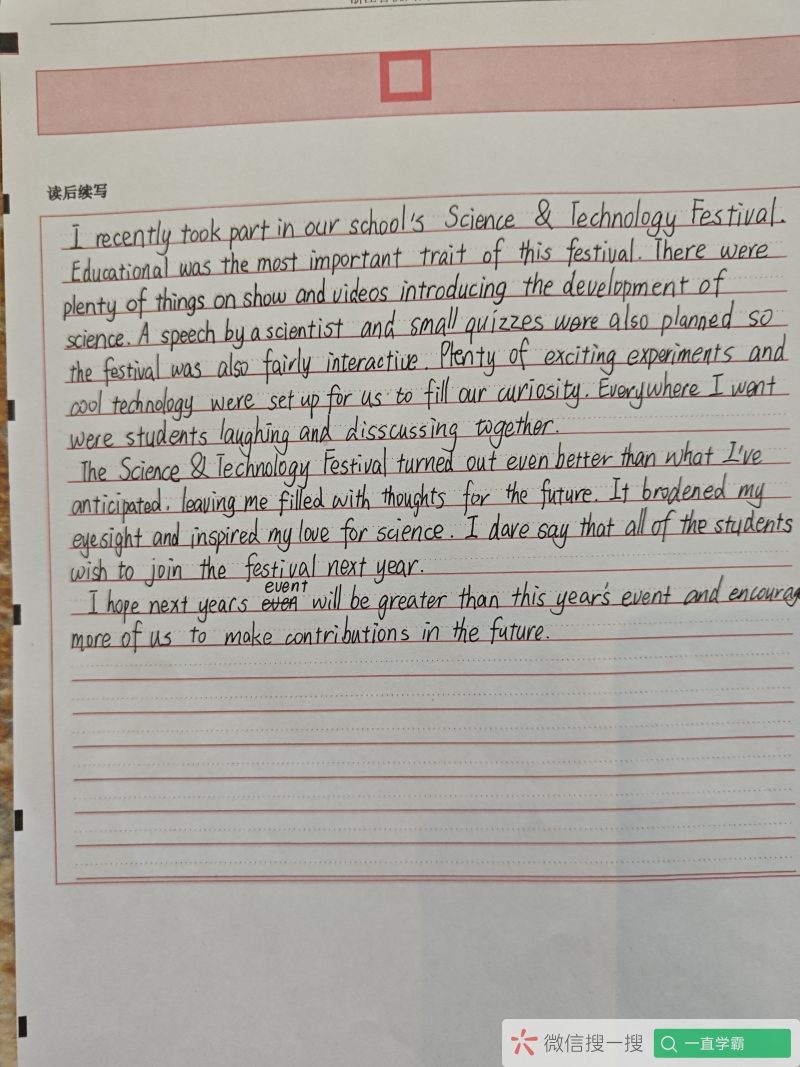 读后续写
I recently took part in our school's Science & Technology Festival.
Educational was the most important trait of this festival. There were
plenty of things on show and videos introducing the development of
science. A speech by a scientist and small quizzes were also planned so
the festival was also fairly interactive. Plenty of exciting experiments and
cool technology were set up for us to fill our curiosity. Everywhere I went
were students laughing and disscussing together.
The Science & Technology Festival turned out even better than what I've
anticipated, leaving me filled with thoughts for the future. It brodened my
eyesight and inspired my love for science. I dare say that all of the students
wish to join the festival next year.
event
I hope next years even will be greater than this year's event and encourag
more of us to make contributions in the future.
微信搜一搜
一直学霸